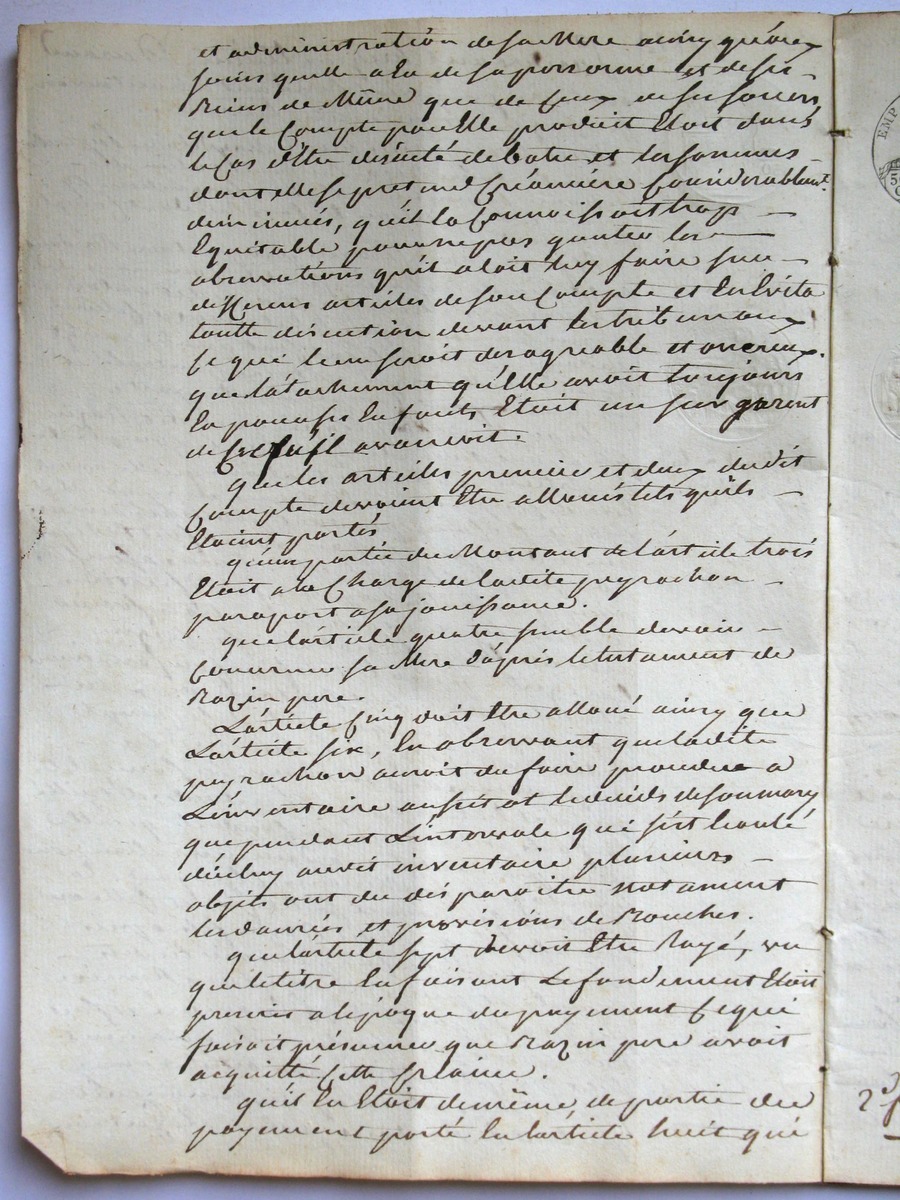 et administration de sa Mere ainsy qu'aux
soins quelle a Eu de sa personne et de ses
Biens de Même que de Ceux de ses soeurs
que le Compte par Elle produit Etoit dans
le Cas d'Etre discuté debatu et les sommes
dont elle se pretend Créancière Considerablemt.
diminuées, qu'il la Connoissoit trop
Equitable pour ne pas gouter les
observations qu'il aloit luy faire sur
differens articles de son Compte et En Evita
toutte discution devant les tribunaux
se qui leur seroit desagreable et onereux.
que latachement qu'Elle avoit toujours
Eu pour ses Enfants Etoit un sur garent
de Ce qu'il avanceroit.
que les articles premier et deux dudit
Compte devoient Etre alloués tels qu'ils
Etoient portés
qu'une partie du Montant de l'article trois
Etoit a la Charge de ladite peyrachon
par raport a sa jouissance.
que l'article quatre semble devoir
Concerner sa Mere d'après le testament de
Razin pere.
L'article Cinq doit Etre alloué ainsy que
L'article six, En observant que ladite
peyrachon auroit du faire proceder a
L'inventaire aussitot le décés de son mary
que pendant L'intervale qui s'est Ecoulé
décès audit inventaire plusieurs
objets ont du disparoitre notament
les danrées et provisions de Bouches.
que l'article sept devoit Etre Rayé, vu
que le titre En faisant Le fondement Etoit
prescrit a l'époque du payement Ce qui
faisoit présumer que Razin pere avoit
acquitté Cette Créance.
qu'il En Etoit de même de partie du
payement porté En l'article huit qui
EMP